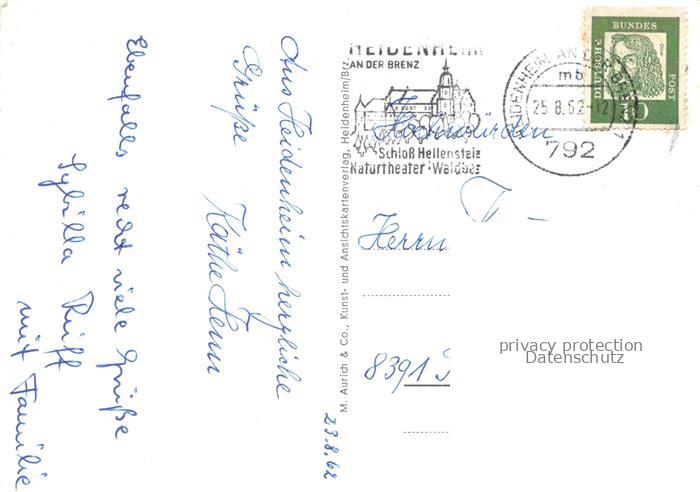 Aus Heidenheim herzliche
Grüße
Käthe Henn
Ebenfalls recht viele Grüße
Sybilla Reiff
mit Familie
23.8.62
M. Aurich & Co., Kunst- und Ansichtskartenverlag, Heidenheim/Brz.
HEIDENHEIM
AN DER BRENZ
Schloß Hellenstein
Naturtheater·Waldbad
HEIDENHEIM AN DER BRENZ 1
mb
25.8.62-12
792
BUNDES
POST
DEUTSCHE
Hochwürden
Herrn
8391
privacy protection
Datenschutz